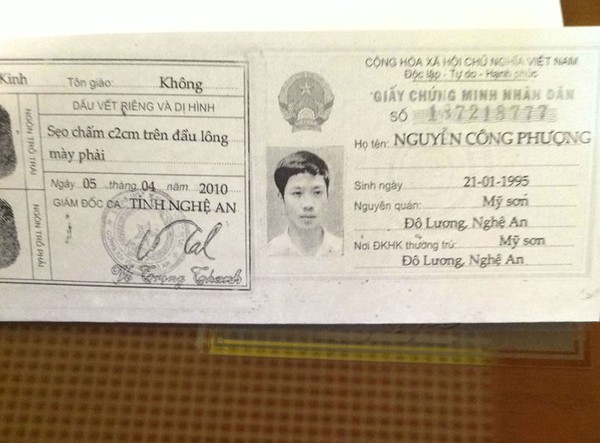 Kinh Tôn giáo: Không
DẤU VẾT RIÊNG VÀ DỊ HÌNH
NGÓN TRỎ TRÁI
Sẹo chấm c2cm trên đầu lông
mày phải
NGÓN TRỎ PHẢI
Ngày 05 tháng 04 năm 2010
GIÁM ĐỐC CA TỈNH NGHỆ AN
CỘNG HÒA XÃ HỘI CHỦ NGHĨA VIỆT NAM
Độc lập - Tự do - Hạnh phúc
GIẤY CHỨNG MINH NHÂN DÂN
SỐ 187218777
Họ tên: NGUYỄN CÔNG PHƯỢNG
Sinh ngày 21-01-1995
Nguyên quán: Mỹ sơn
Đô Lương, Nghệ An
Nơi ĐKHK thường trú: Mỹ sơn
Đô Lương, Nghệ An